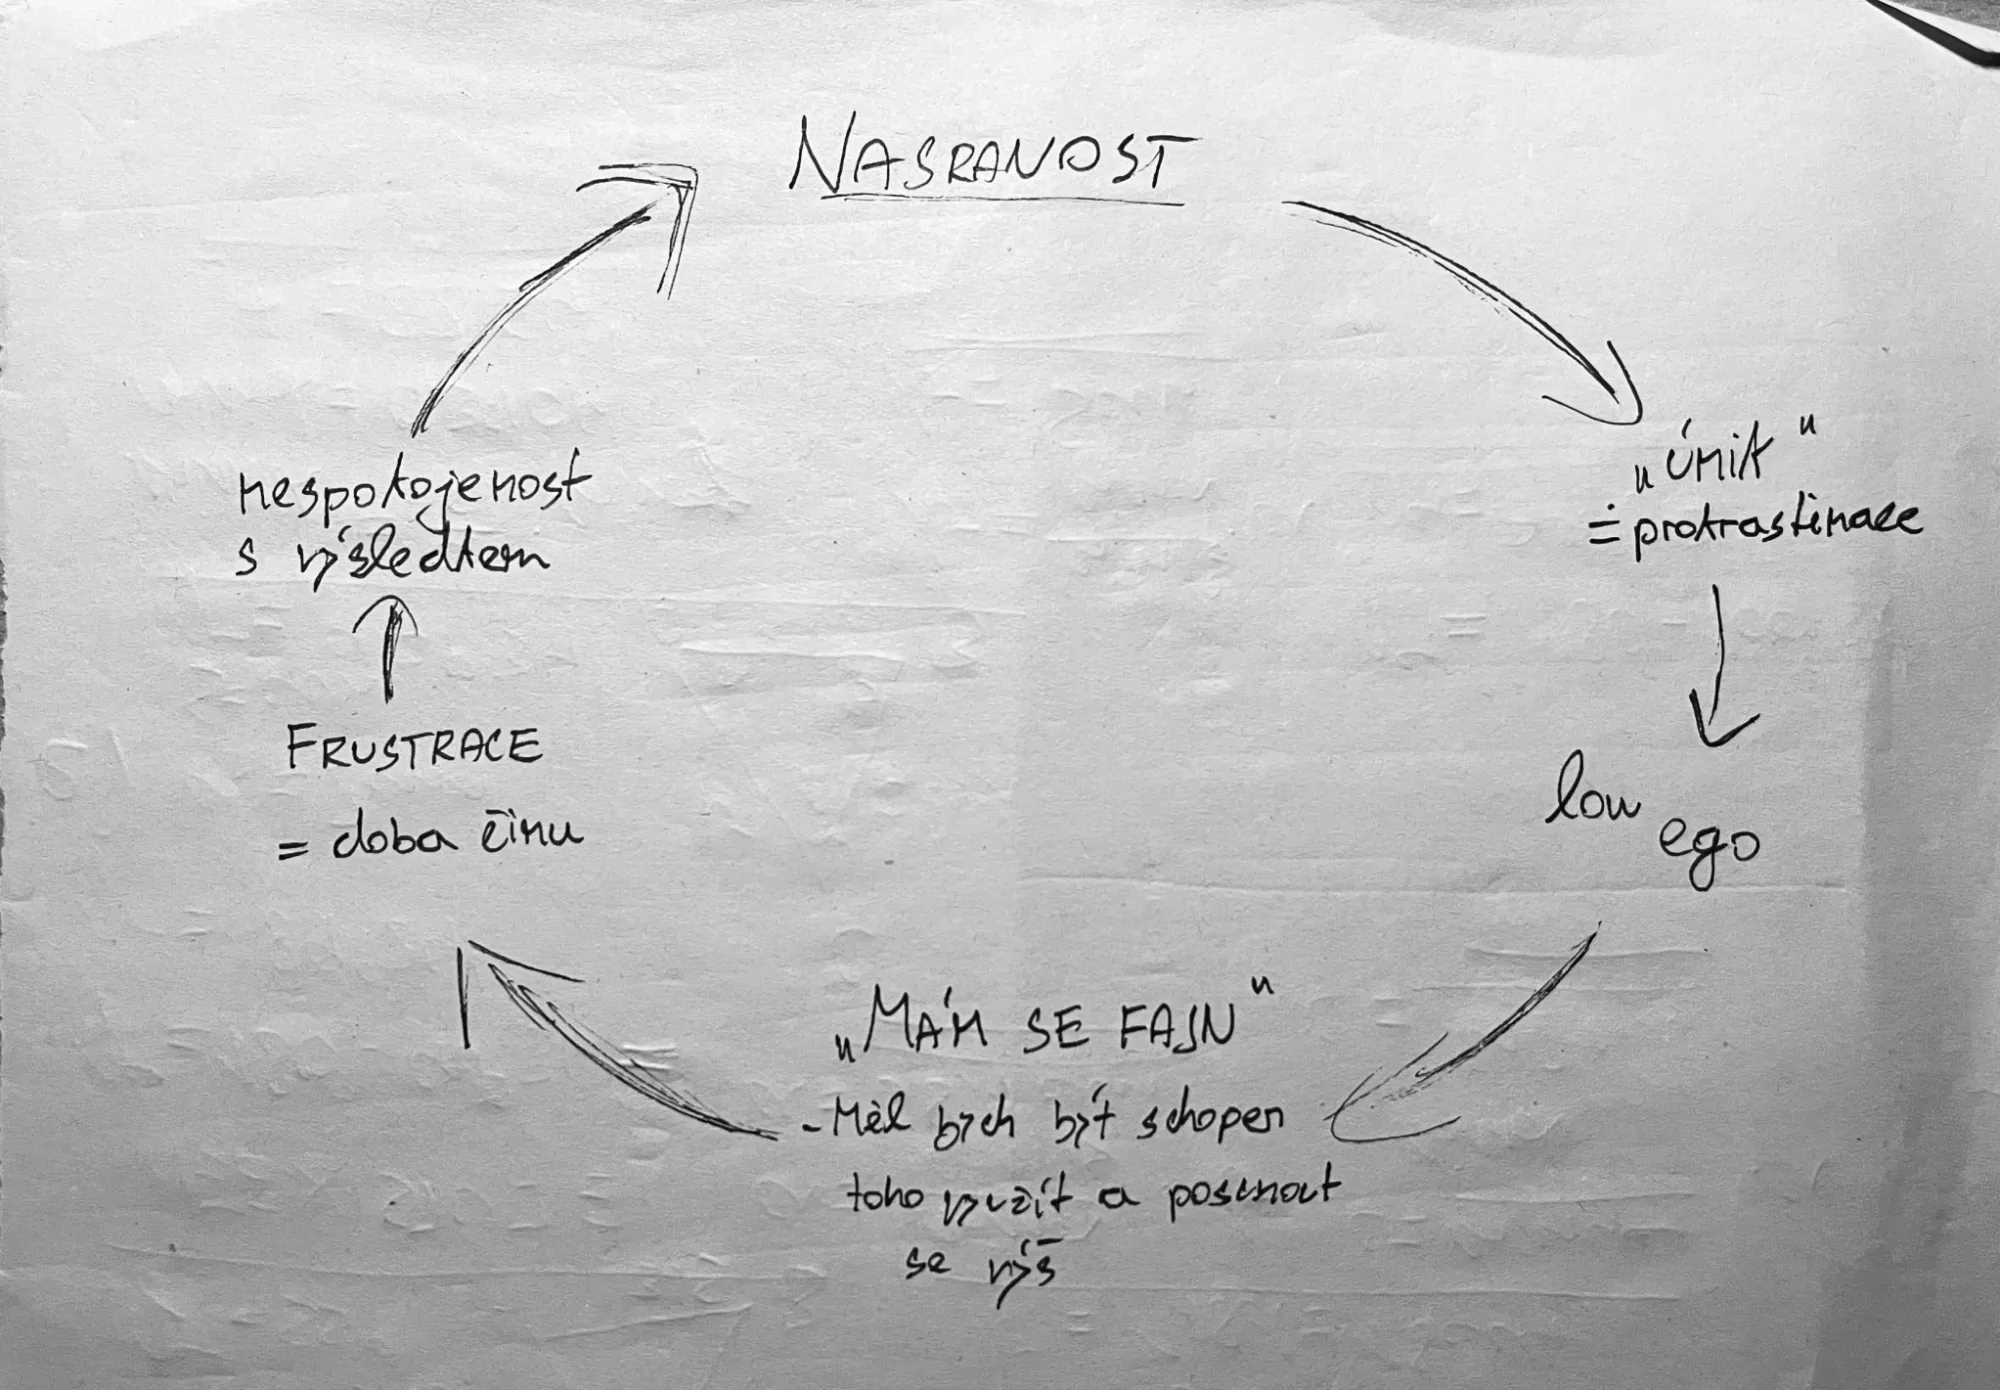 NASRANOST
„únik"
≐ prokrastinace
low
ego
„MÁM SE FAJN"
- Měl bych být schopen
toho využít a posunout
se výš
FRUSTRACE
= doba činu
nespokojenost
s výsledkem